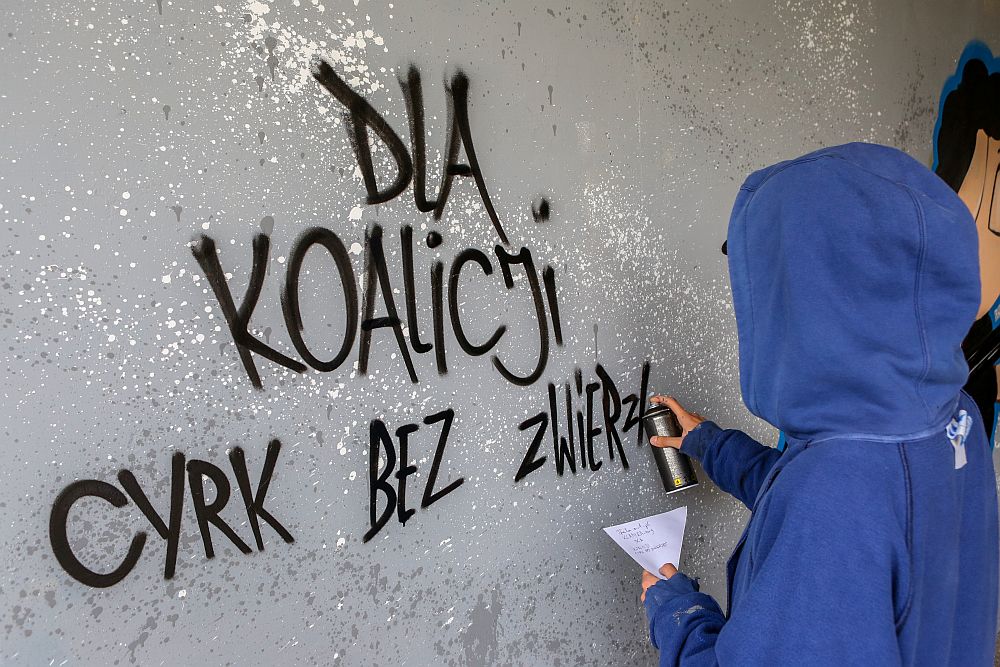 DLA
KOALICJI
CYRK BEZ ZWIERZ